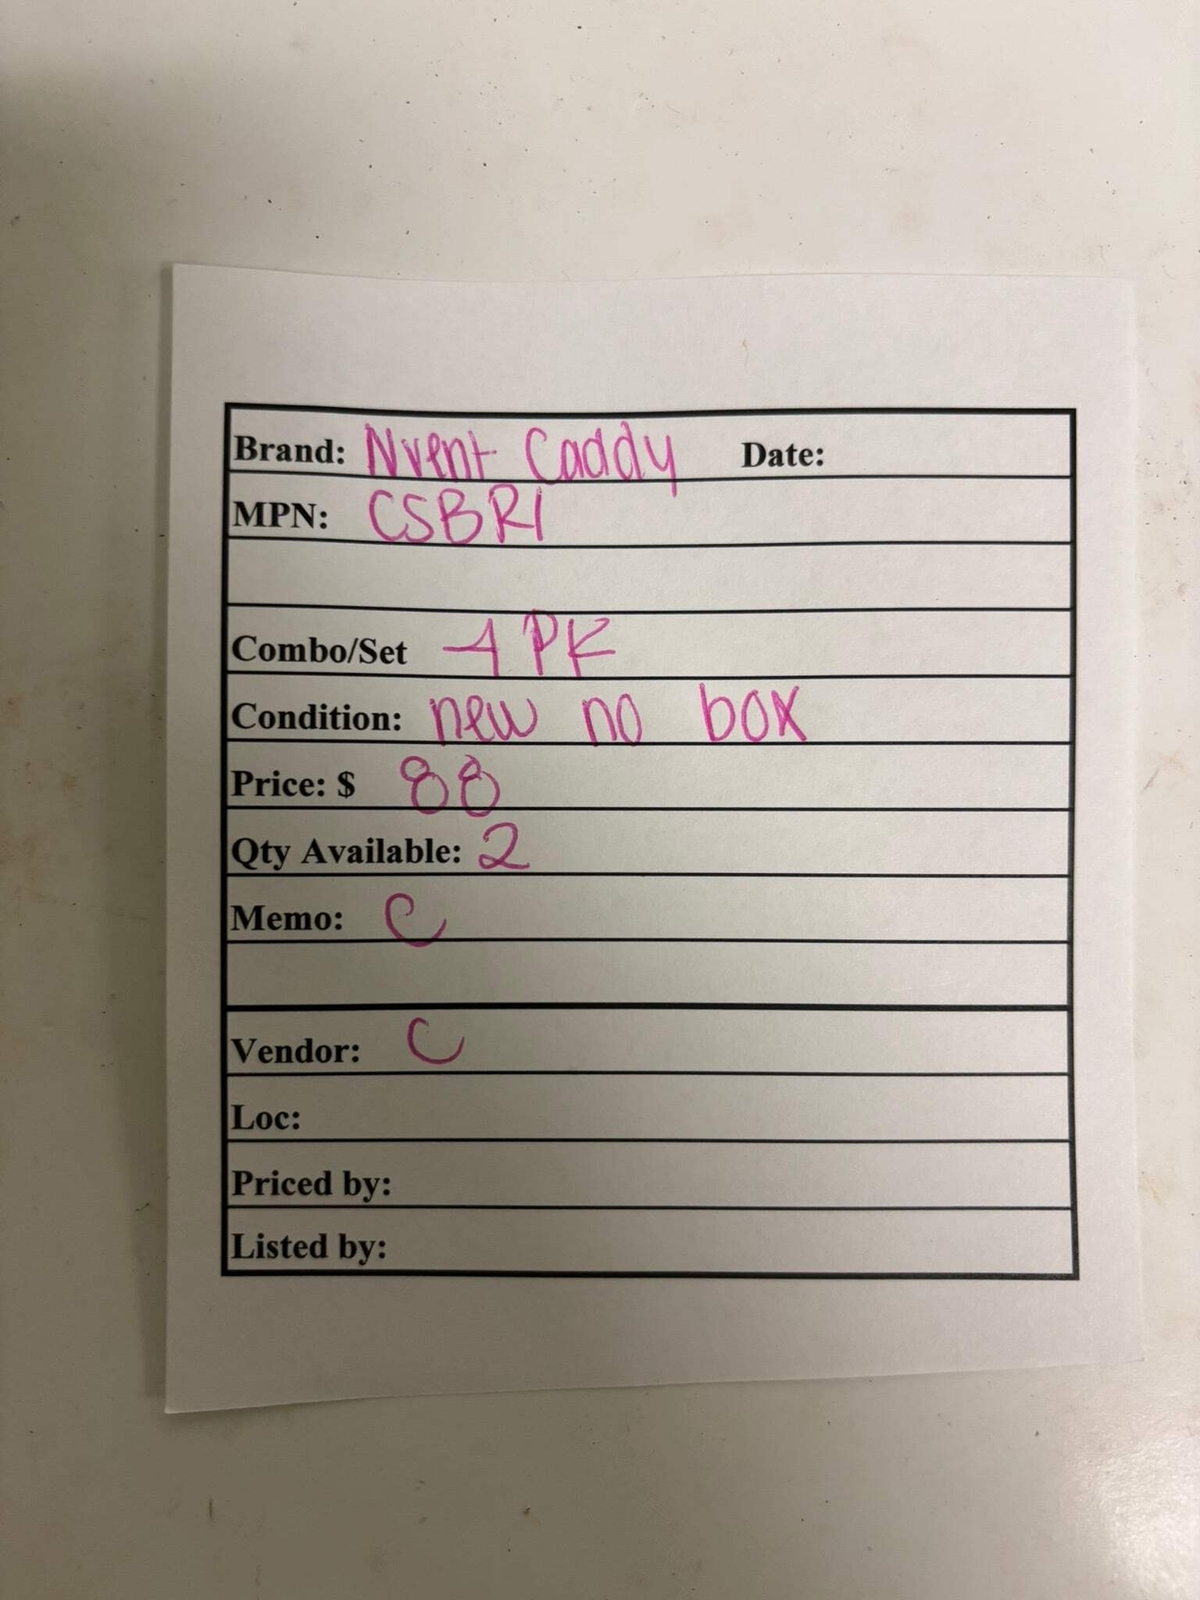 Brand: Nvent Caddy Date:
MPN: CSBR1
Combo/Set 4 PK
Condition: new no box
Price: $ 88
Qty Available: 2
Memo: C
Vendor: C
Loc:
Priced by:
Listed by: